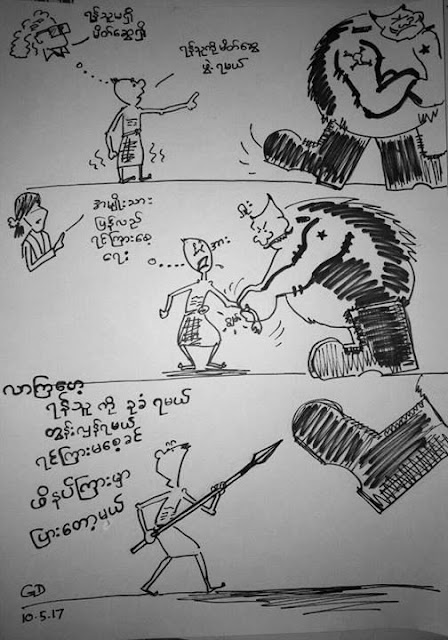 ရန်သူမရှိ
မိတ်ဆွေရှိ
ရန်သူကိုမိတ်ဆွေ
ဖွဲ့ရမယ်
အမျိုးသား
ပြန်လည်
ရင်ကြားစေ့
ရေး
အား
လာကြဟေ့
ရန်သူကို ခုခံ ရမယ်
တွန်းလှန်ရမယ်
ရင်ကြားမစေ့ခင်
ဖိနပ်ကြားမှာ
ပြားတော့မယ်
GD
10.5.17